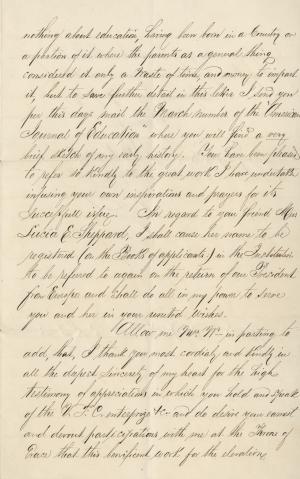 nothing about education, having been born in a Country or
a portion of it where the parents as a general thing
considered it only a waste of time, and money to impart
it, but to save further detail in this letter I send you
per this days mail the March number of the "American
Journal of Education" where you will find a very
brief sketch of my early history. You have been pleased
to refer so kindly to the great work I have undertaken
infusing your own inspirations and prayers for its
Successfull issue. In regard to your friend Miss
Lucia E. Sheppard, I shall cause her name to be
registered (on the Books of applicants) in the Institution
to be referred to again on the return of our President
from Europe and shall do all in my power to serve
you and her in your united wishes.
Allow me in parting to
add, that, I thank you most cordialy and kindly in
all the deepest sincerety of my heart for the high
testimony of appreciation in which you hold and speak
of the enterprize &c and do desire your counsel
and devout participations with me at the Throne of
Grace that this benificent work for the elevation,